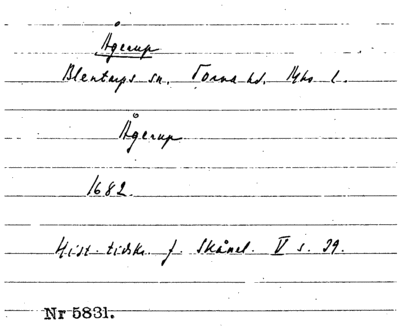 Ågerup
Blentarps sn. Torna hd. Mhs l.
Ågerup
1682.
Hist. tidskr. f. Skånel. V s. 39.
Nr 5831.